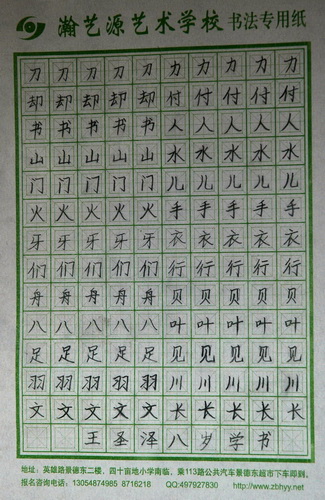 瀚艺源艺术学校 书法专用纸
刀刀刀刀刀力力力力力
却却却却却付付付付付
书书书书书人人人人人
山山山山山水水水水水
门门门门门儿儿儿儿儿
火火火火火手手手手手
牙牙牙牙牙衣衣衣衣衣
们们们们们行行行行行
舟舟舟舟舟贝贝贝贝贝
八八八八八叶叶叶叶叶
足足足足足见见见见见
羽羽羽羽羽川川川川川
文文文文文长长长长长
王圣泽八岁学书
地址：英雄路景德东二楼，四十亩地小学南临，乘113路公共汽车景德东超市下车即到。
报名咨询电话：13054874985 8716218 QQ:497927830 http://www.zbhyy.net